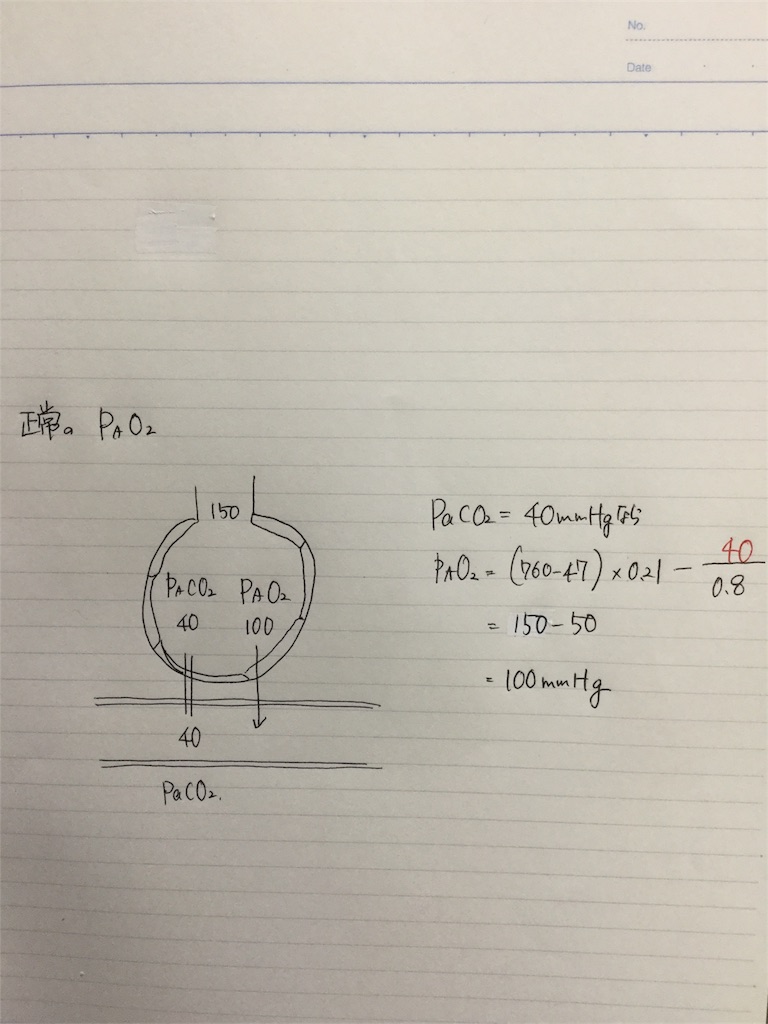 No.
Date
正常の PAO2
150
PACO2 PAO2
40 100
40
PaCO2.
PaCO2 = 40mmHgなら
PAO2 = (760-47) × 0.21 - 40/0.8
= 150-50
= 100mmHg